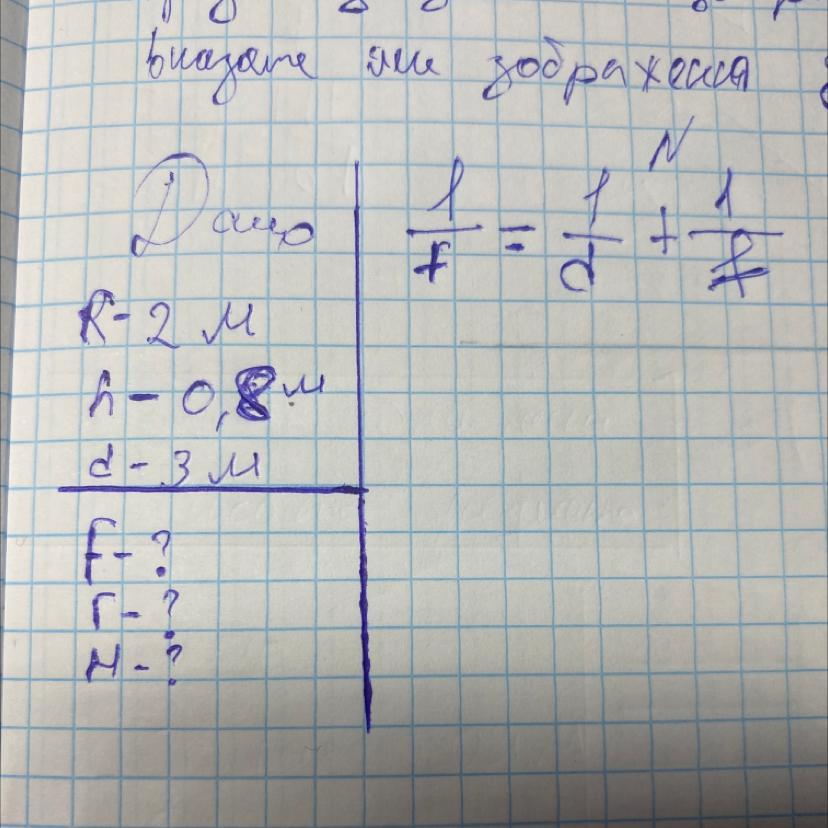 вказати яке зображення
Дано
R - 2 м
h - 0,8 м
d - 3 м
f - ?
Г - ?
H - ?
N
1/F = 1/d + 1/f